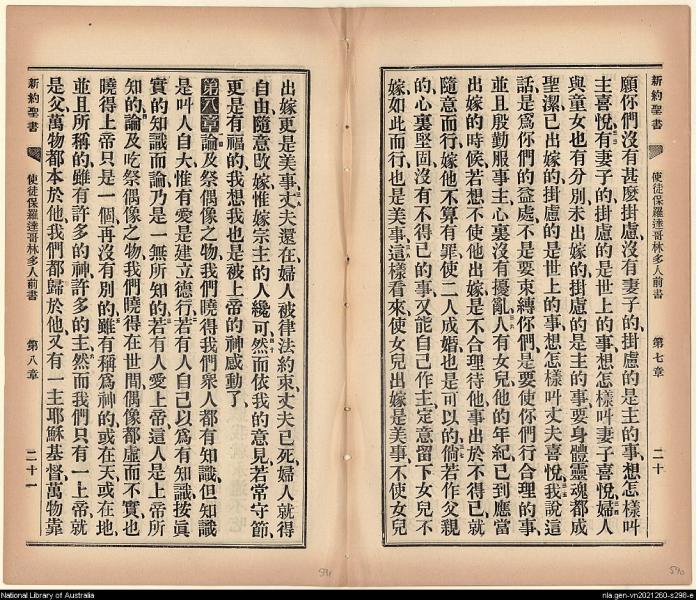 新約聖書 使徒保羅達哥林多人前書 第七章 二十
願你們沒有甚麽掛慮沒有妻子的掛慮的是主的事想怎樣叫
主喜悅有妻子的掛慮的是世上的事想怎樣叫妻子喜悅婦人
與童女也有分別未出嫁的掛慮的是主的事要身體靈魂都成
聖潔已出嫁的掛慮的是世上的事想怎樣叫丈夫喜悅我說這
話是爲你們的益處不是要束縛你們是要使你們行合理的事
並且殷勤服事主心裏沒有擾亂人有女兒他的年紀已到應當
出嫁的時候若想不使他出嫁是不合理待他事出於不得已就
隨意而行嫁他不算有罪使二人成婚也是可以的倘若作父親
的心裏堅固沒有不得已的事又能自己作主定意留下女兒不
嫁如此而行也是美事這樣看來使女兒出嫁是美事不使女兒
出嫁更是美事丈夫還在婦人被律法約束丈夫已死婦人就得
自由隨意改嫁惟嫁宗主的人纔可然而依我的意見若常守節
更是有福的我想我也是被上帝的神感動了
第八章論及祭偶像之物我們曉得我們衆人都有知識但知識
是叫人自大惟有愛是建立德行若有人自己以爲有知識按眞
實的知識而論乃是一無所知的若有人愛上帝這人是上帝所
知的論及吃祭偶像之物我們曉得在世間偶像都虛而不實也
曉得上帝只是一個再沒有別的雖有稱爲神的或在天或在地
並且所稱的雖有許多的神許多的主然而我們只有一上帝就
是父萬物都本於他我們都歸於他又有一主耶穌基督萬物靠
新約聖書 使徒保羅達哥林多人前書 第八章 二十一
National Library of Australia
nla.gen-vn2021260-s298-e